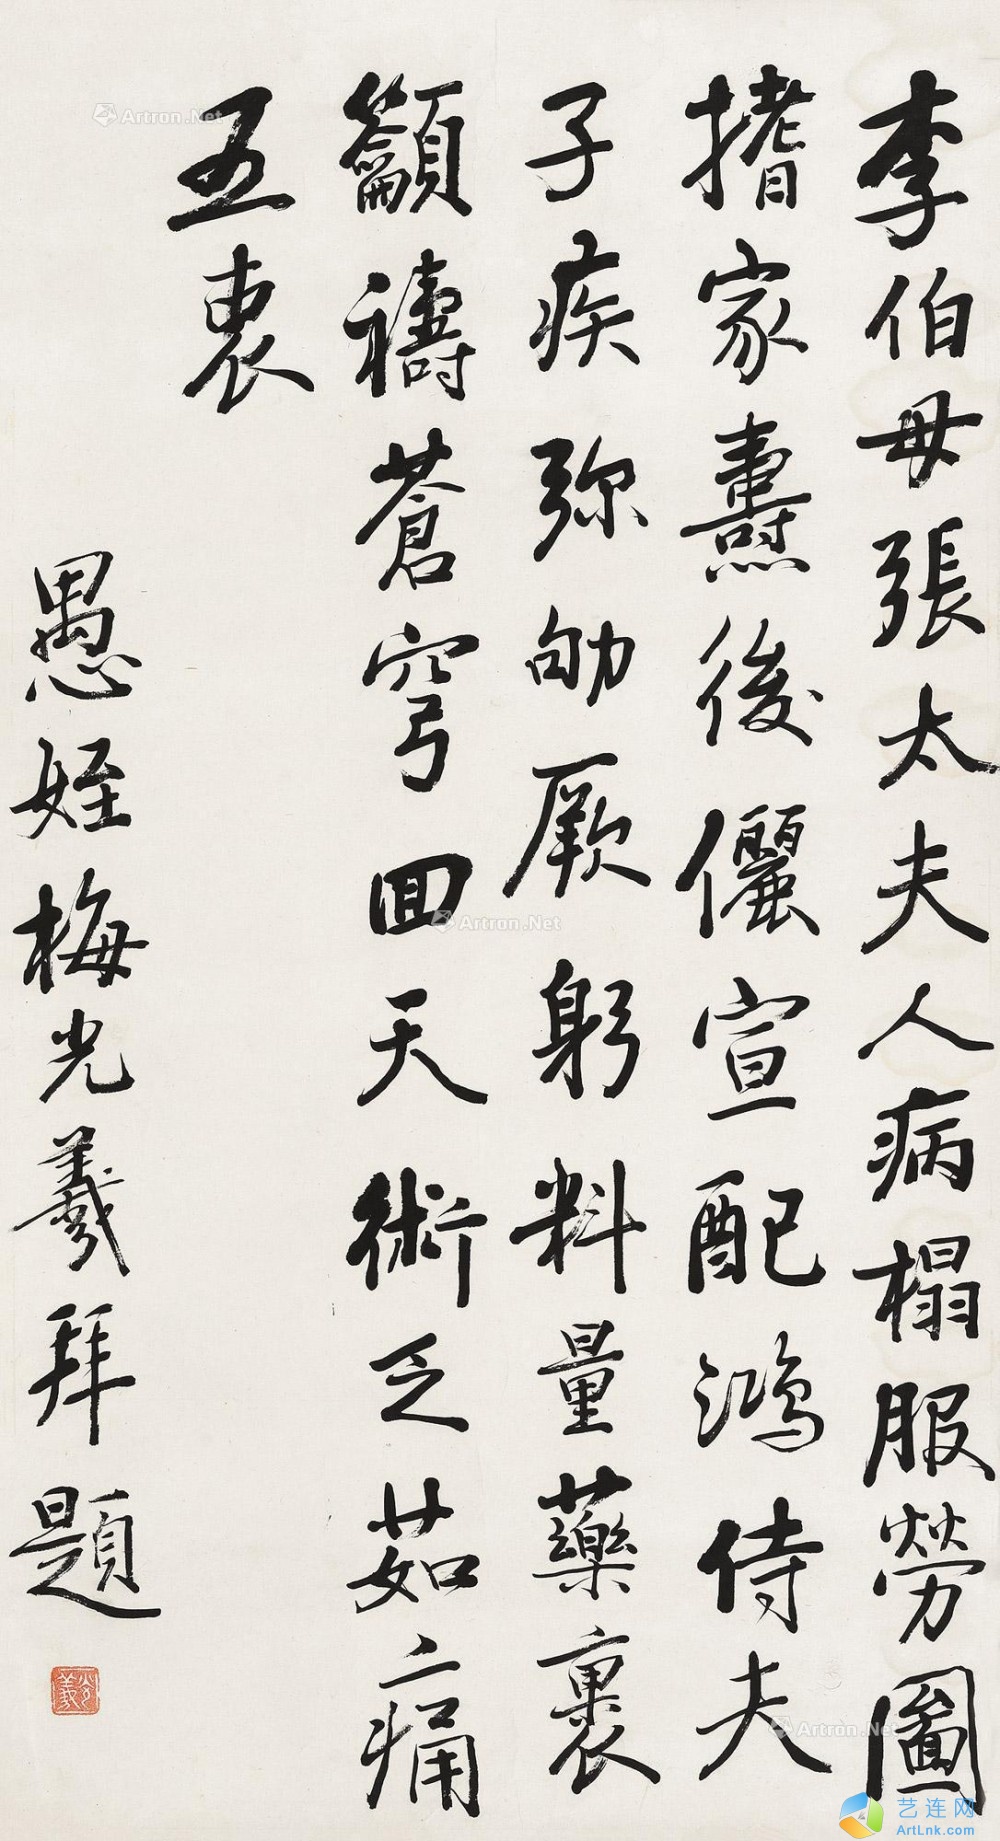 李伯母張太夫人病榻服勞圖
搘家燾後儷宣配鴻侍夫
子疾弥劬厥躬料量藥裹
籲禱蒼穹回天術乏茹痛
五衷
愚姪梅光羲拜題
光羲
Artron.Net
Artron.Net
Artron.Net
艺连网
ArtLnk.com